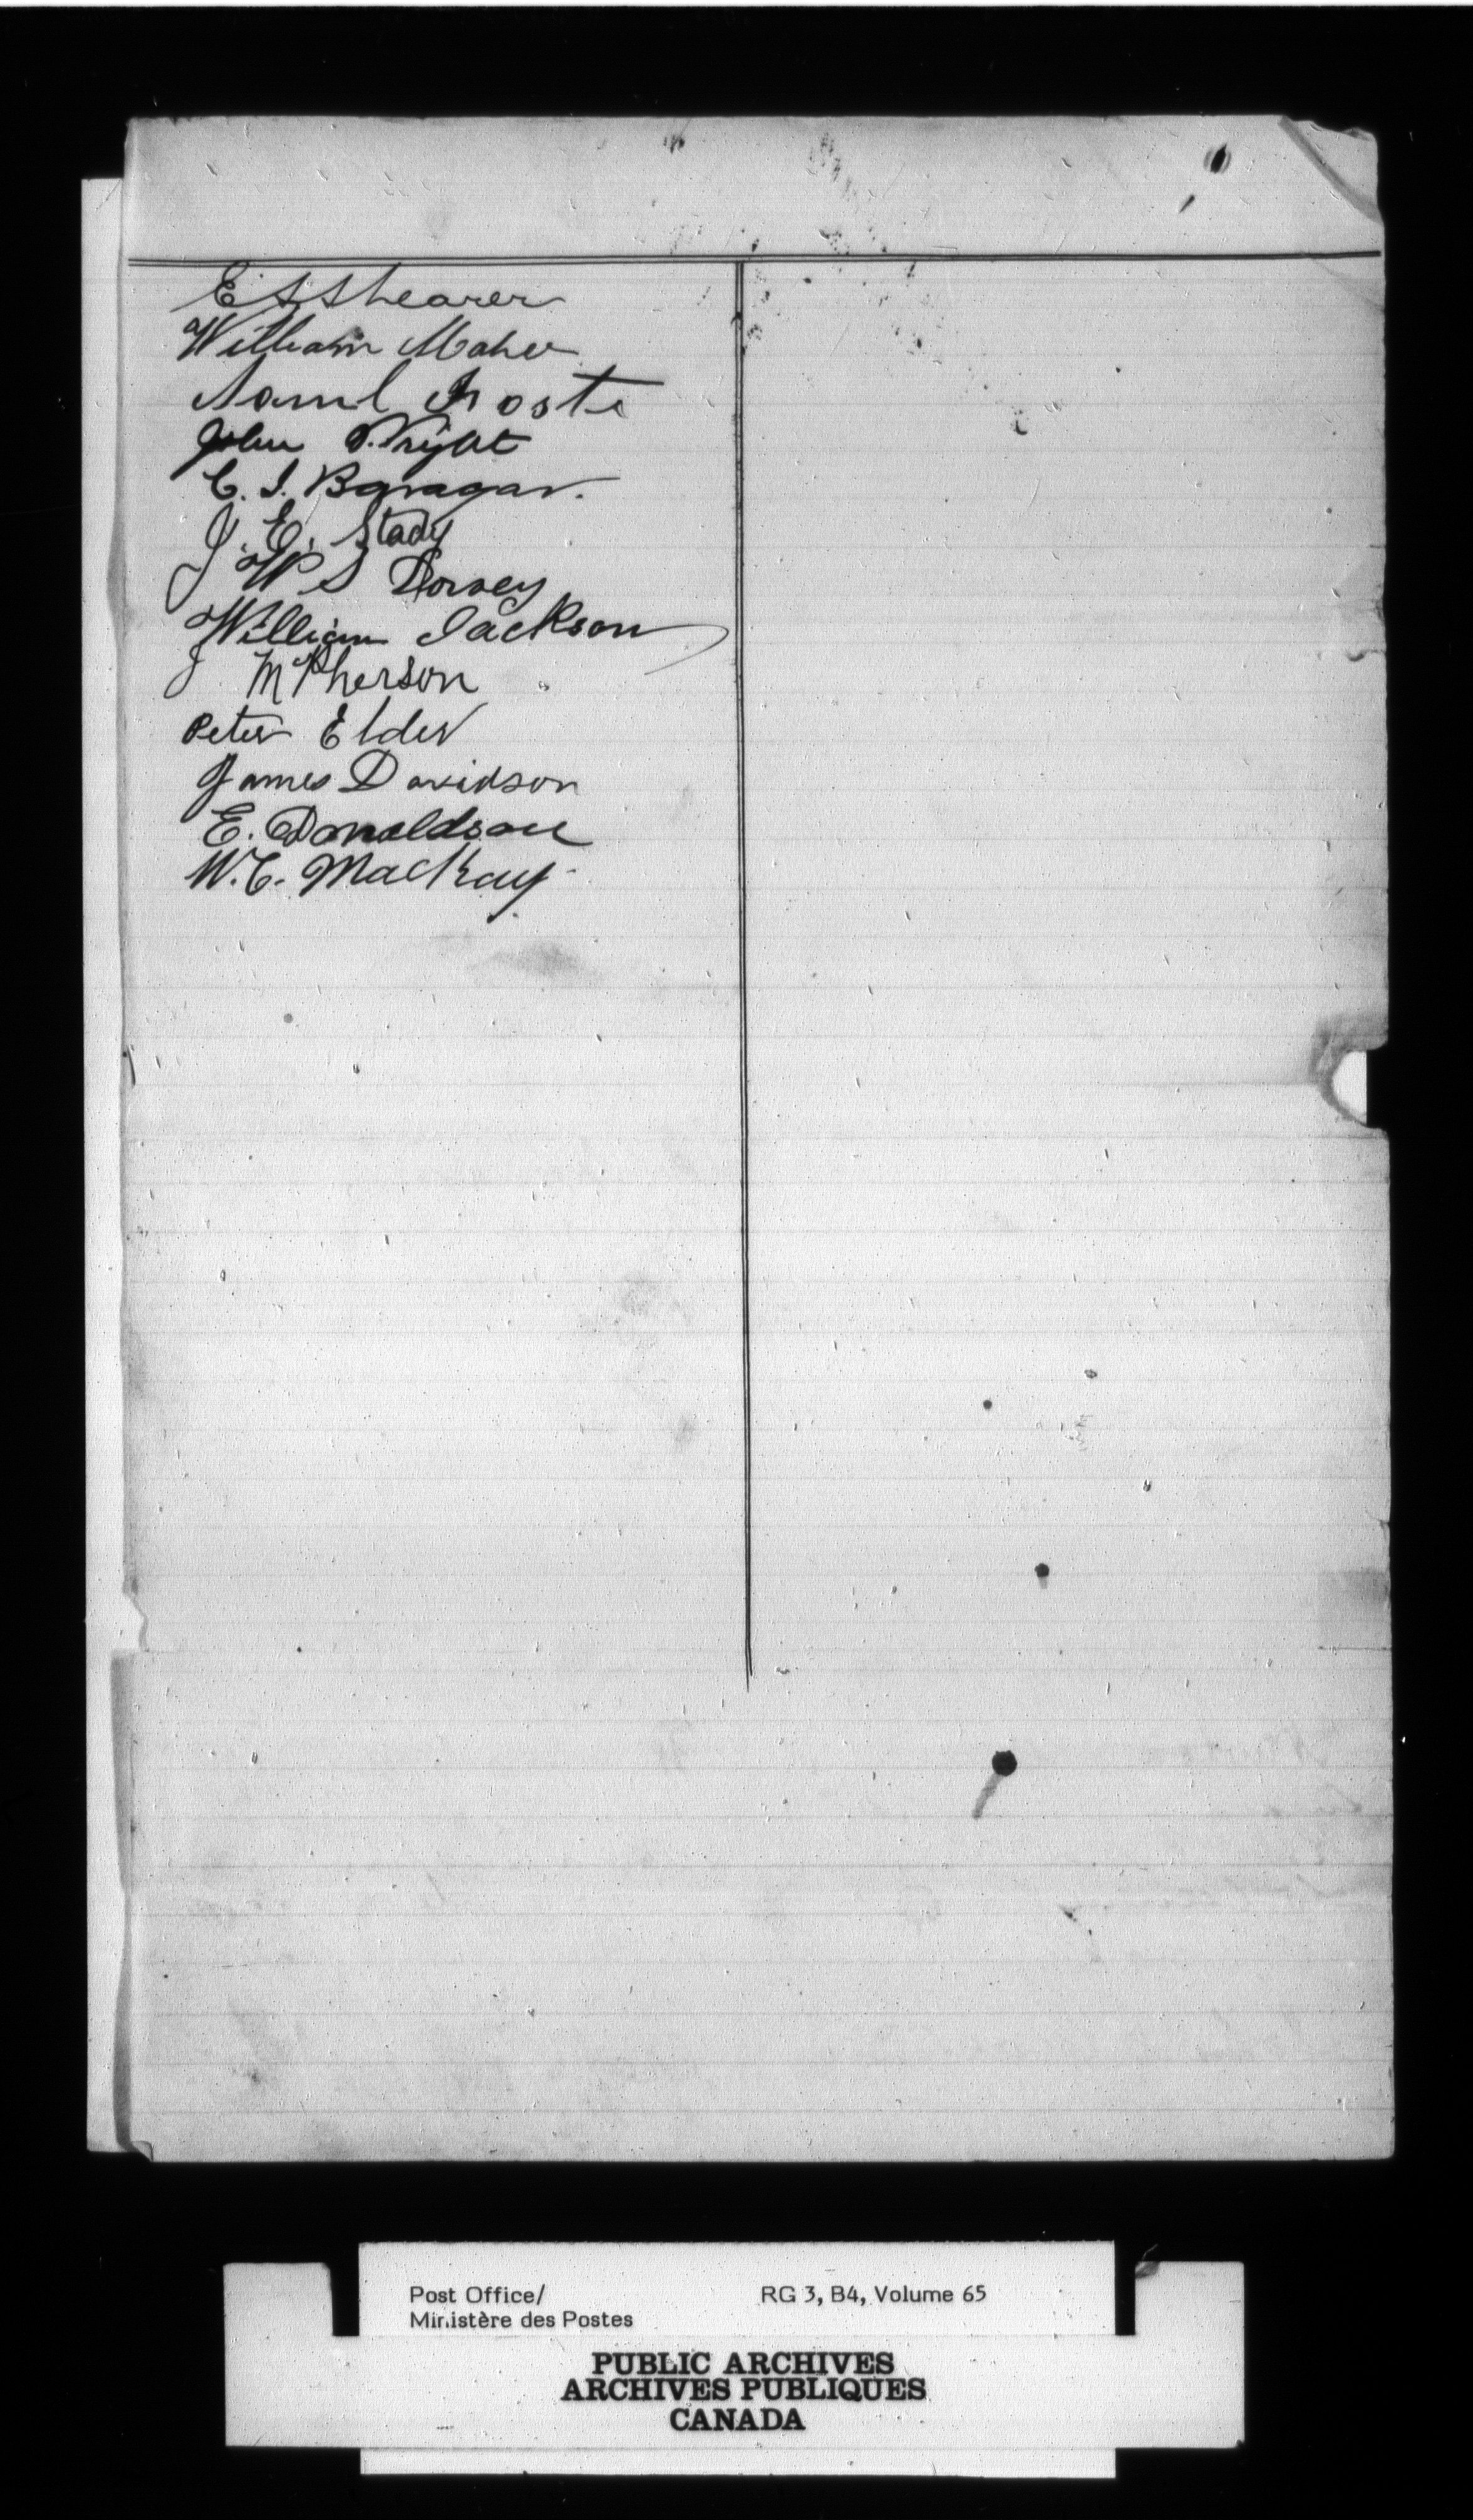 E S Shearer
William Maher
Saml Foste
John Wright
C. I. Baragar.
J. E. Stady
J W S Dorvey
William Jackson
J McPherson
Peter Elder
James Davidson
E. Donaldson
W. C. MacKay
Post Office/ RG 3, B4, Volume 65
Ministère des Postes
PUBLIC ARCHIVES
ARCHIVES PUBLIQUES
CANADA